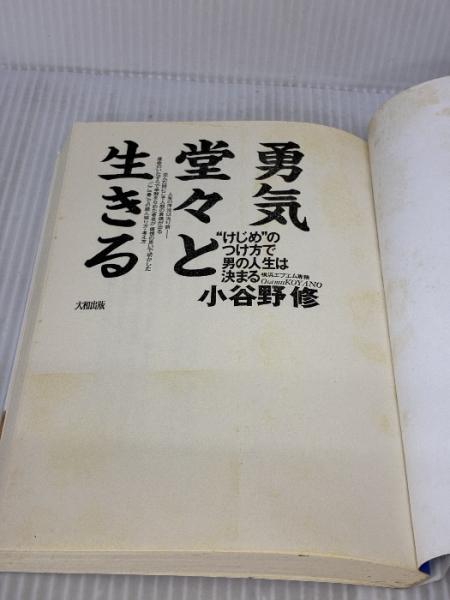 勇気
堂々と
生きる
“けじめ”の
つけ方で
男の人生は
決まる
横浜エフエム専務
Osamu KOYANO
小谷野 修
大和出版